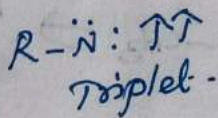 R-N̈: ↑↑
Triplet.